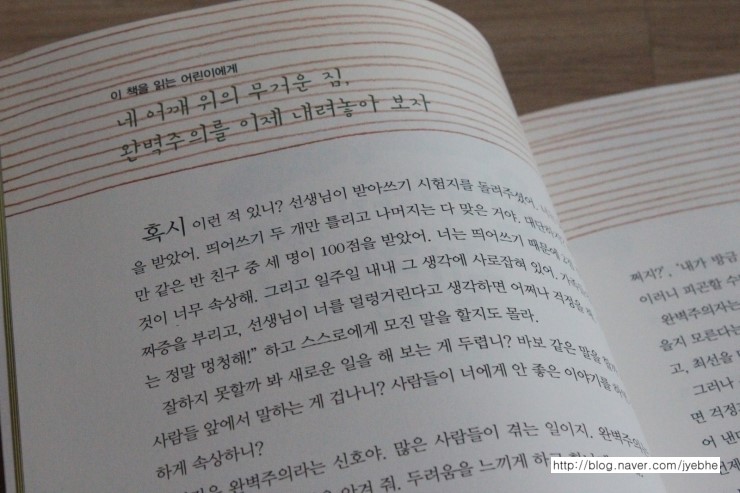 이 책을 읽는 어린이에게
네 어깨 위의 무거운 짐,
완벽주의를 이제 내려놓아 보자
혹시 이런 적 있니? 선생님이 받아쓰기 시험지를 돌려주셨어.
을 받았어. 띄어쓰기 두 개만 틀리고 나머지는 다 맞은 거야.
만 같은 반 친구 중 세 명이 100점을 받았어. 너는 띄어쓰기 때문에
것이 너무 속상해. 그리고 일주일 내내 그 생각에 사로잡혀 있어.
짜증을 부리고, 선생님이 너를 덜렁거린다고 생각하면 어쩌나 걱정을
는 정말 멍청해!” 하고 스스로에게 모진 말을 할지도 몰라.
잘하지 못할까 봐 새로운 일을 해 보는 게 두렵니? 바보 같은 말을
사람들 앞에서 말하는 게 겁나니? 사람들이 너에게 안 좋은 이야기를
하게 속상하니?
완벽주의라는 신호야. 많은 사람들이 겪는 일이지.
두려움을 느끼게 하고
쩌지?’, ‘내가 방금
이러니 피곤할 수
완벽주의자는
을지 모른다는
고, 최선을
그러나
면 걱정
어 낸
http://blog.naver.com/jyebhe